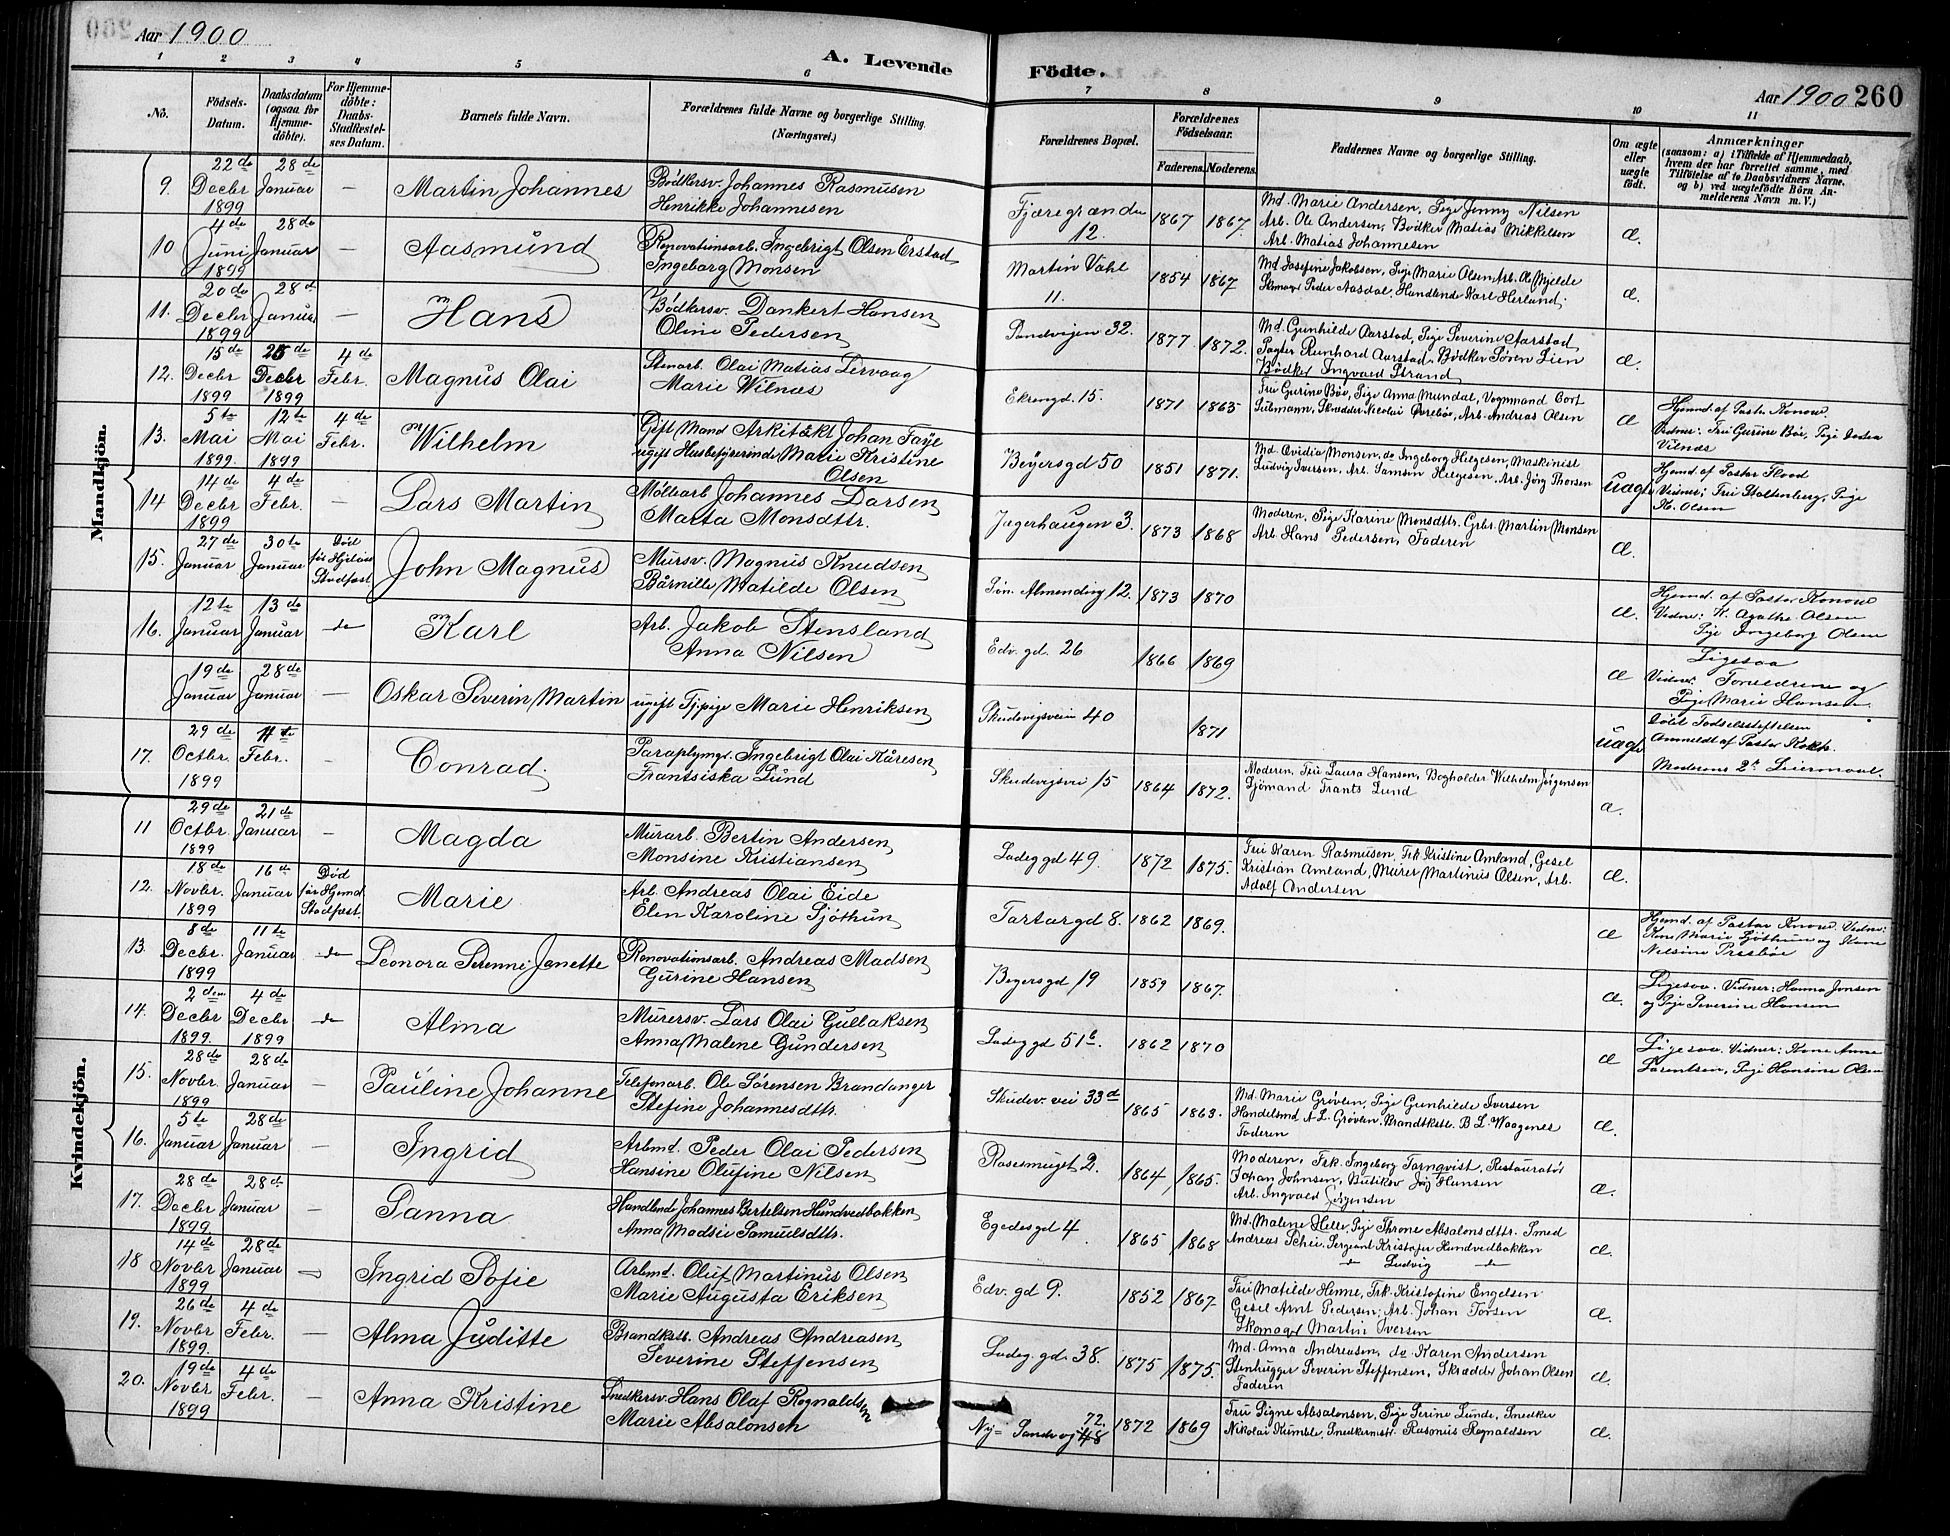 Aar 1900
A. Levende
Födte.
Aar 1900 260
1 2 3 4 5 6 7 8 9 10 11
No.
Födsels-
Datum.
Daabsdatum
(ogsaa for
Hjemme-
döbte).
For Hjemme-
döbte:
Daabs-
Stadfæstel-
ses Datum.
Barnets fulde Navn.
Forældrenes fulde Navne og borgerlige Stilling.
(Næringsvei.)
Forældrenes Bopæl.
Forældrenes
Födselsaar.
Faderens. Moderens.
Faddernes Navne og borgerlige Stilling.
Om ægte
eller
uægte
födt.
Anmærkninger
(saasom: a) i Tilfælde af Hjemmedaab,
hvem der har forrettet samme, med
Tilföielse af to Daabsvidners Navne,
og b) ved uægtefödte Börn An-
melderens Navn m. V.)
Mandkjön.
9. 22de Decbr 1899 28de Januar — Martin Johannes
Bødkersv. Johannes Rasmusen
Henrikke Johannesen
Fjæregranden 12. 1867 1867.
Md. Marie Andersen, Pige Jenny Nilsen
Arb. Ole Andersen, Bødker Matias Mikkelsen
Arb. Matias Johannesen
æ.
10 4de Juni 1899 28de Januar — Aasmund
Renovationsarb. Ingebrigt Olsen Erstad
Ingeborg Monsen
Martin Vahl 11. 1854 1867
Md Josefine Jakobsen, Pige Marie Olsen, Arb. Ole Mjelde
Skomager Peder Aasdal, Handlende Karl Herland.
æ.
11. 20de Decbr 1899 28d Januar — Hans
Bødkersv. Dankert Hansen
Oline Pedersen
Sandvigen 32. 1877 1872.
Md. Gunhilde Aarstad, Pige Severine Aarstad
Reinhard Aarstad, Bødker Søren Lien
Bødker Ingvald Strand
æ.
12. 15de Decbr 1899 25de Decbr 1899 4de Febr. Magnus Olai
Stenarb. Olai Matias Lervaag
Marie Wilnæs
Ekrengd. 15. 1871 1865
Fru Gurine Bøe, Pige Anna Mundal, Vognmand Cort
Skrædder Nicolai Øvrebøe, Arb. Andreas Olsen
æ
Hjemd. af Pastor Konow.
Vidner: Fru Gurine Bøe, Pige
Vilnæs
13. 5te Mai 1899. 12te Mai 1899 4de Febr. Wilhelm
Gift Mand Arkitekt Johan Faye
ugift Husbestyrerinde Marie Kristine
Olsen
Beyersgd 50 1851 1871.
Md. Ovidia Monsen, do Ingeborg Helgesen, Maskinist
Ludvig Iversen, Arb. Samson Helgesen, Arb. Jørg Thorsen
uægte
Hjemd. af Pastor Flood
Vidner: Fru Stoltenberg, Pige
K. Olsen
14 14de Decbr 1899 4de Febr. — Lars Martin
Møllearb Johannes Larsen
Marta Monsdttr.
Jægerhaugen 3. 1873 1868
Moderen, Pige Karine Monsdttr. Grbr. Martin Monsen
Arb. Hans Pedersen, Faderen
æ.
15. 27de Januar 30te Januar Død før Stadfæst John Magnus
Mursv. Magnus Knudsen
Bårnille Matilde Olsen
Almending 12. 1873 1870
æ.
Hjemd. af Pastor Konow
Vidner: K. Agathe Olsen
Pige Ingeborg Olsen
16. 12te Januar 13de Januar do Karl
Arb. Jakob Stensland
Anna Nilsen
Edv. gd. 26 1866 1869
æ
Ligesaa
Vidner: Forældrene og
Pige Marie Hansen
19de Januar 28de Januar — Oskar Severin Martin
ugift Tjpige Marie Henriksen
Skudevigsveien 40 1871
uægte
Fødselsstiftelsen
Anmeldt af Pastor
Moderens 2t Leiermaal.
17. 29de Octbr. 1899 Febr. — Conrad.
Paraplymgr. Ingebrigt Olai Kåresen
Frantsiska Lund
Skudevigsvei 15 1864 1872.
Moderen, Fru Laura Hansen, Bogholder Wilhelm Jørgensen
Sjømand Frants Lund
æ.
Kvindekjön.
11 29de Octbr. 1899 21de Januar — Magda
Murarb. Bertin Andersen
Monsine Kristiansen
Ladeggd 49. 1872 1875.
Fru Karen Rasmusen, Frk Kristine Amland, Gesel
Kristian Amland, Murer Martinus Olsen, Arb.
Adolf Andersen
æ.
12. 18de Novbr. 1899 16de Januar Død før Hjemd Stadfæst Marie
Arb. Andreas Olai Eide
Elen Karoline Sjøthun
Tartargd 8. 1862 1869.
æ
Hjemd. af Pastor Konow. Vidner:
Kone Marie Sjøthun og Kone
Nilsine
13. 8de Decbr. 1899 11te Januar do Leonora Serenne Janette
Renovationsarb. Andreas Madsen
Gurine Hansen
Beyersgd 19 1859 1867.
æ.
Ligesaa. Vidner: Hanna Jensen
og Pige Severine Hansen
14. 2den Decbr 1899. 4de Decbr 1899 do Alma
Murersv. Lars Olai Gullaksen
Anna Malene Gundersen
Ladeggd 51b. 1862 1870
æ
Ligesaa. Vidner: Kone Anne
Larentsen, Pige Hansine Olsen
15. 28de Novbr. 1899 28de Januar — Pauline Johanne
Telefonarb. Ole Sørensen Brandanger
Stefine Johannesdttr.
Skudev. vei 33d 1865 1863.
Md. Marie Grøven, Pige Gunhilde Iversen
Handelsmd A L. Grøven. Brandkstb. B L. Waagenes
Faderen
æ.
16. 5te Januar 28de Januar — Ingrid
Arbmd. Peder Olai Pedersen
Hansine Olufine Nilsen
Rosesmuget 2. 1864 1865.
Moderen, Frk. Ingeborg Tornqvist, Restauratør
Johan Johnsen, Jørg Hansen
Arb. Ingvald Jørgensen
æ.
17. 28de Decbr 1899 28de Januar — Sanna
Handlende Johannes Bertelsen Hundvedbakken
Anna Madsie Samuelsdttr.
Egedesgd 4. 1865 1868
Md. Malene Helle, Pige Throne Absalonsdttr. Smed
Andreas Schei, Sergeant Kristofer Hundvedbakken
do Ludvig do
æ.
18 14de Novbr 1899 28de Januar — Ingrid Sofie
Arbmd. Oluf Martinus Olsen
Marie Augusta Eriksen
Edv. gd 9. 1852 1867
Fru Matilde Henne, Frk. Kristofine Engelsen
Gesel Arnt Pedersen, Arb. Johan Torsen
Skomager Martin Iversen
æ.
19. 26de Novbr 1899. 4de Febr. — Alma Juditte
Brandkstb. Andreas Andreasen
Severine Steffensen
Ladeg. gd. 38. 1875 1875.
Md. Anna Andreasen, do Karen Andersen
Stenhugger Severin Steffensen, Skrædder Johan Olsen
Faderen
æ.
20. 19de Novbr 1899 4de Febr. — Anna Kristine
Snedkersv. Hans Olaf Rognaldsen
Marie Absalonsen
Ny-Sandvgs 72. 48 1872 1869
Fru Signe Absalonsen, Pige Serine Lunde, Snedker
Nikolai Kumble, Snedkermstr. Rasmus Rognaldsen
æ.